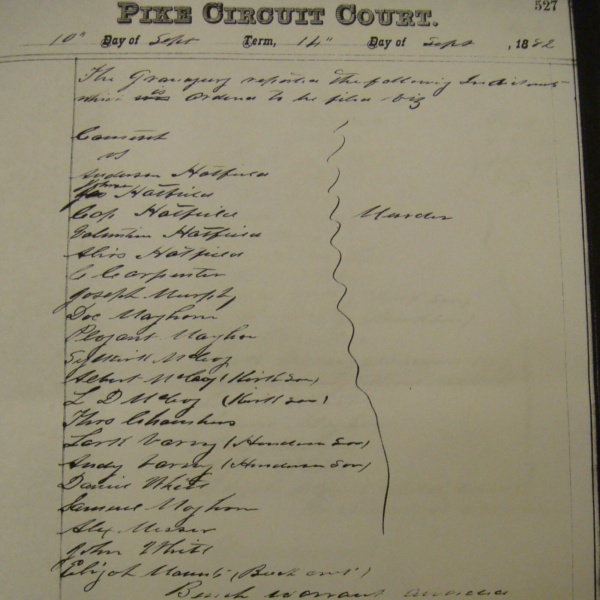 527
PIKE CIRCUIT COURT.
10" Day of Sept Term, 14" Day of Sept, 1882
The Grandjury reported the following Indictments
which is ordered to be filed viz
Comwth
vs
Anderson Hatfield
Johnse Hatfield
Cap Hatfield Murder
Valentine Hatfield
Elias Hatfield
C Carpenter
Joseph Murphy
Doc Mayhorn
Plezant Mayhorn
Selkirk McCoy
Albert McCoy (Kirk Son)
L D McCoy (Kirk Son)
Thos Chambers
Lark Varny (Henderson Son)
Andy Varny (Henderson Son)
Daniel White
Samuel Mayhorn
Alex Messer
John White
Elijah Mounts (Buck
Bench warrant awarded